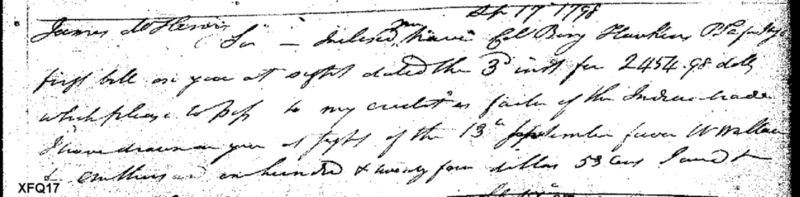 17 1798
James McHenry
Sir — Inclosed you have Col Benj Hawkins P. T. a for Ind
first bill on you at sight dated the 3d inst for 2454.98 dolls
which please to pass to my credit as factor of the Indian trade
I have drawn on you at sight of the 13th September favor W Wallace
& one hundred & twenty four dollars 53 Cens I am &
XFQ17